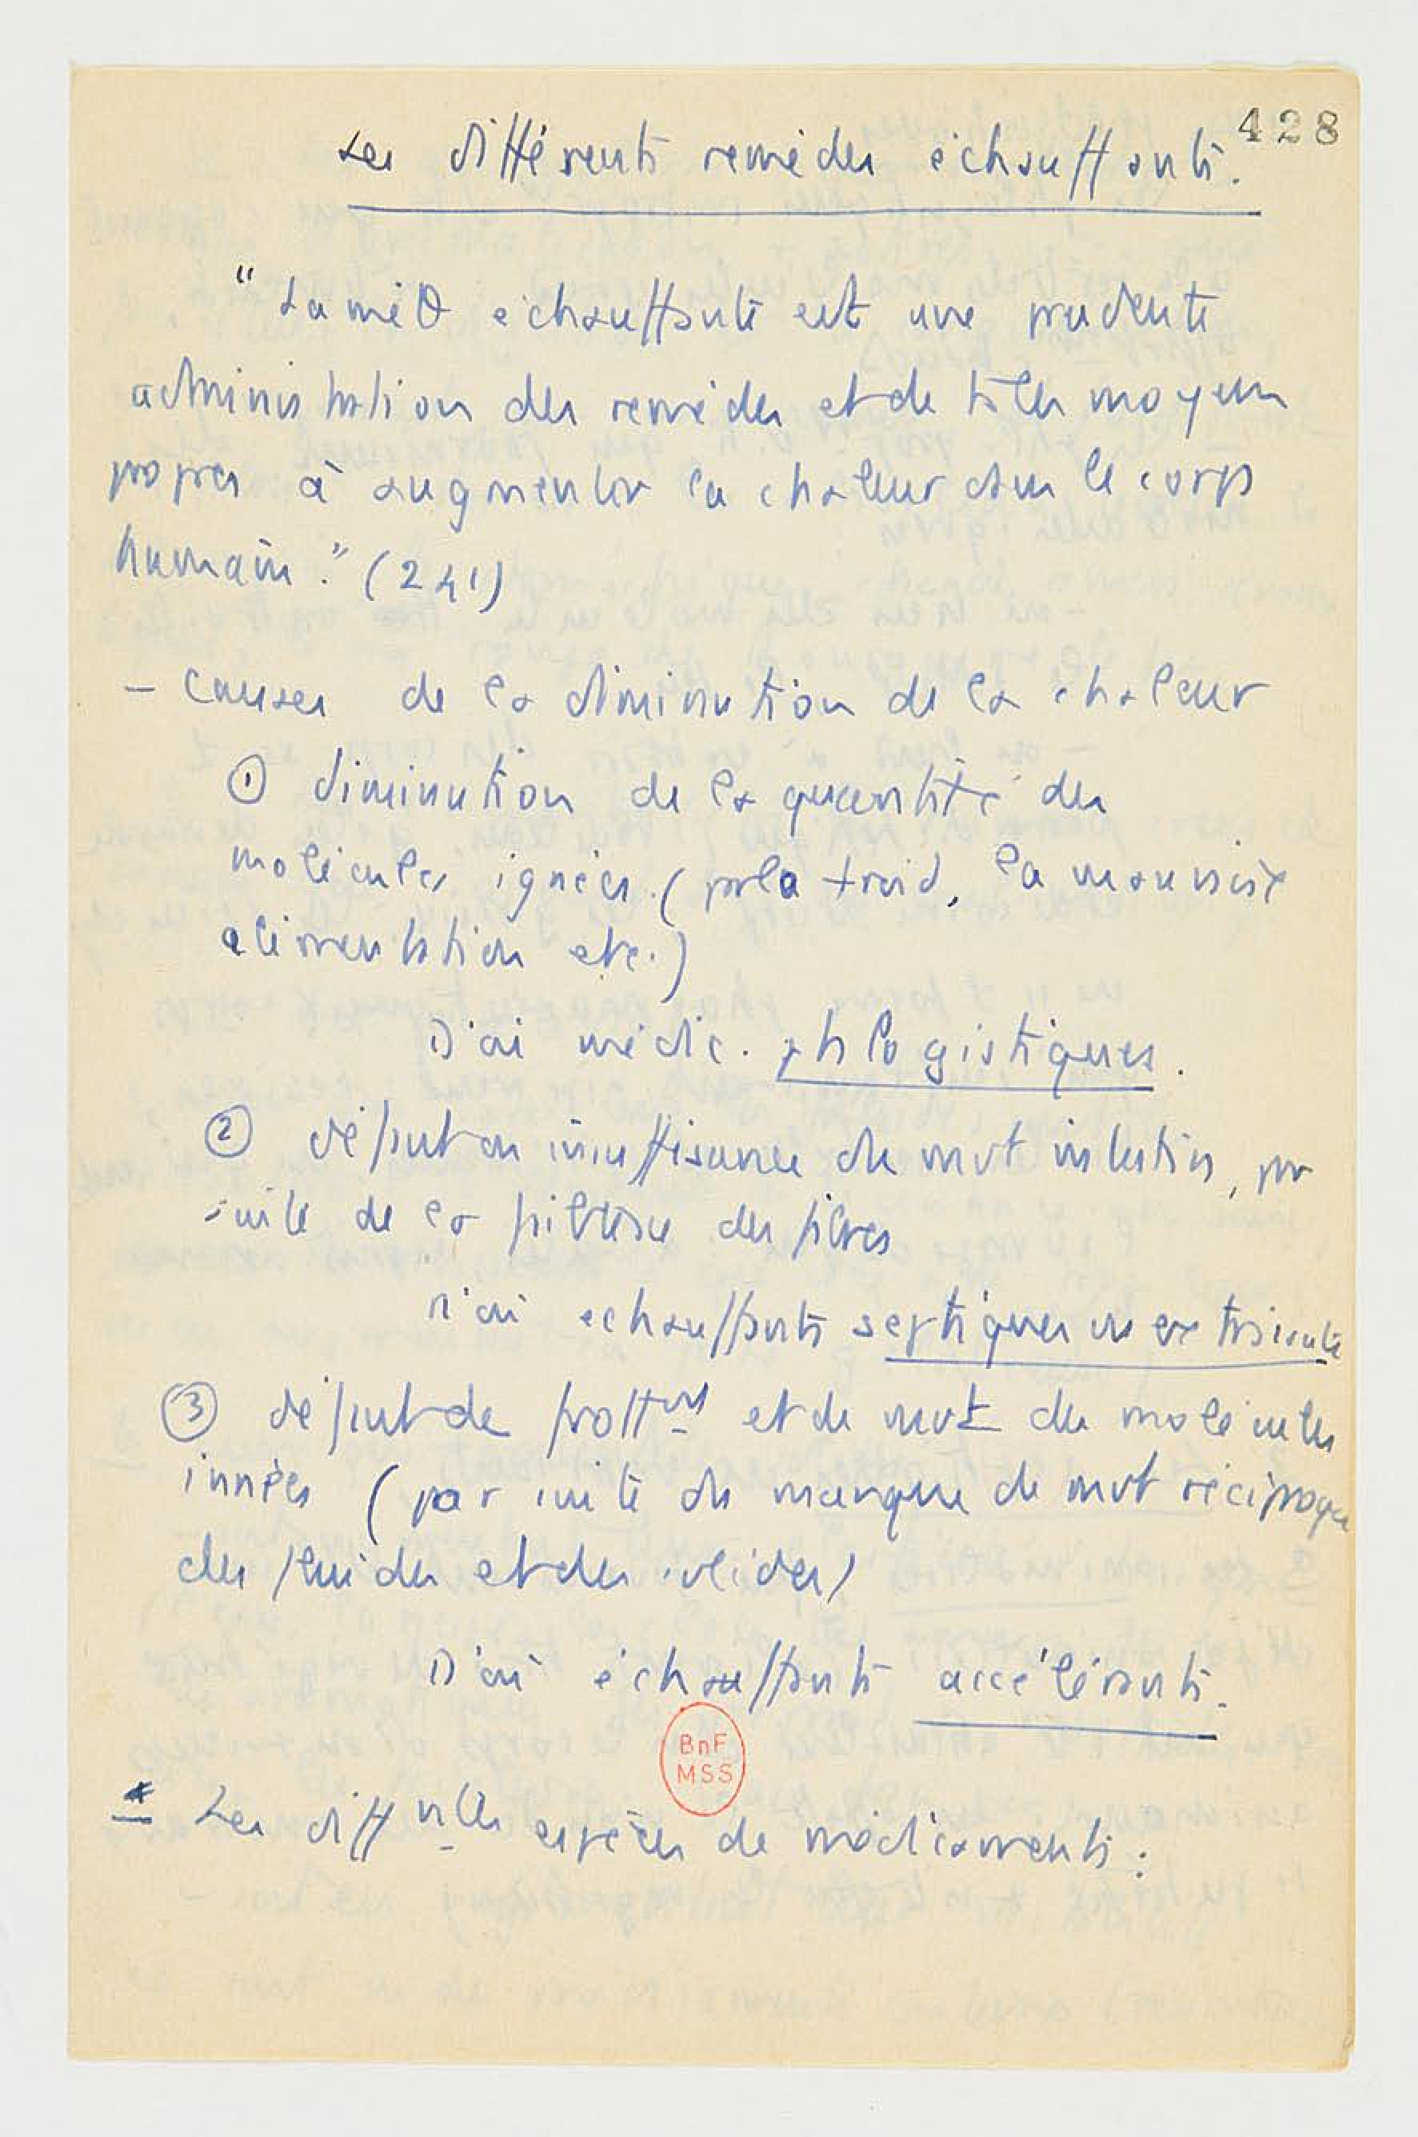 428
Les différents remèdes échauffants.
"La méθ échauffante est une prudente
administration des remèdes et de tous les moyens
propres à augmenter la chaleur dans le corps
humain." (241)
- Causes de la diminution de la chaleur
① diminution de la quantité des
molécules ignées. (par le froid, la mauvaise
alimentation etc.)
D'où médic. phlogistiques.
② défaut ou insuffisance du mvt intestin, par
suite de la des fibres
D'où échauffants septiques ou
③ défaut de frottmt et de mvt des molécules
innées (par suite du manque de mvt réciproque
des fluides et des solides)
D'où échauffants accélérants.
BnF
MSS
Les difftes espèces de médicaments :